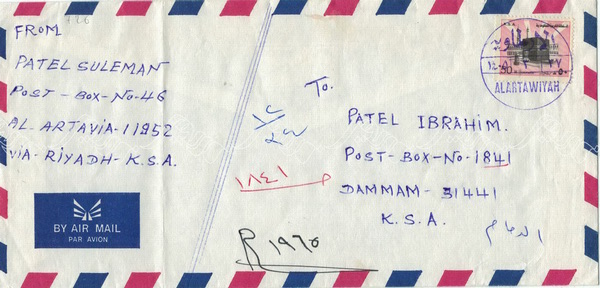 FROM
PATEL SULEMAN
POST-BOX-NO-46
AL. ARTAVIA-11952
VIA-RIYADH-K.S.A.
To.
PATEL IBRAHIM.
POST-BOX-NO-1841
DAMMAM-31441
K.S.A.
الدمام
١٨٤١
R ١٩٦٥
BY AIR MAIL
PAR AVION
ALARTAWIYAH